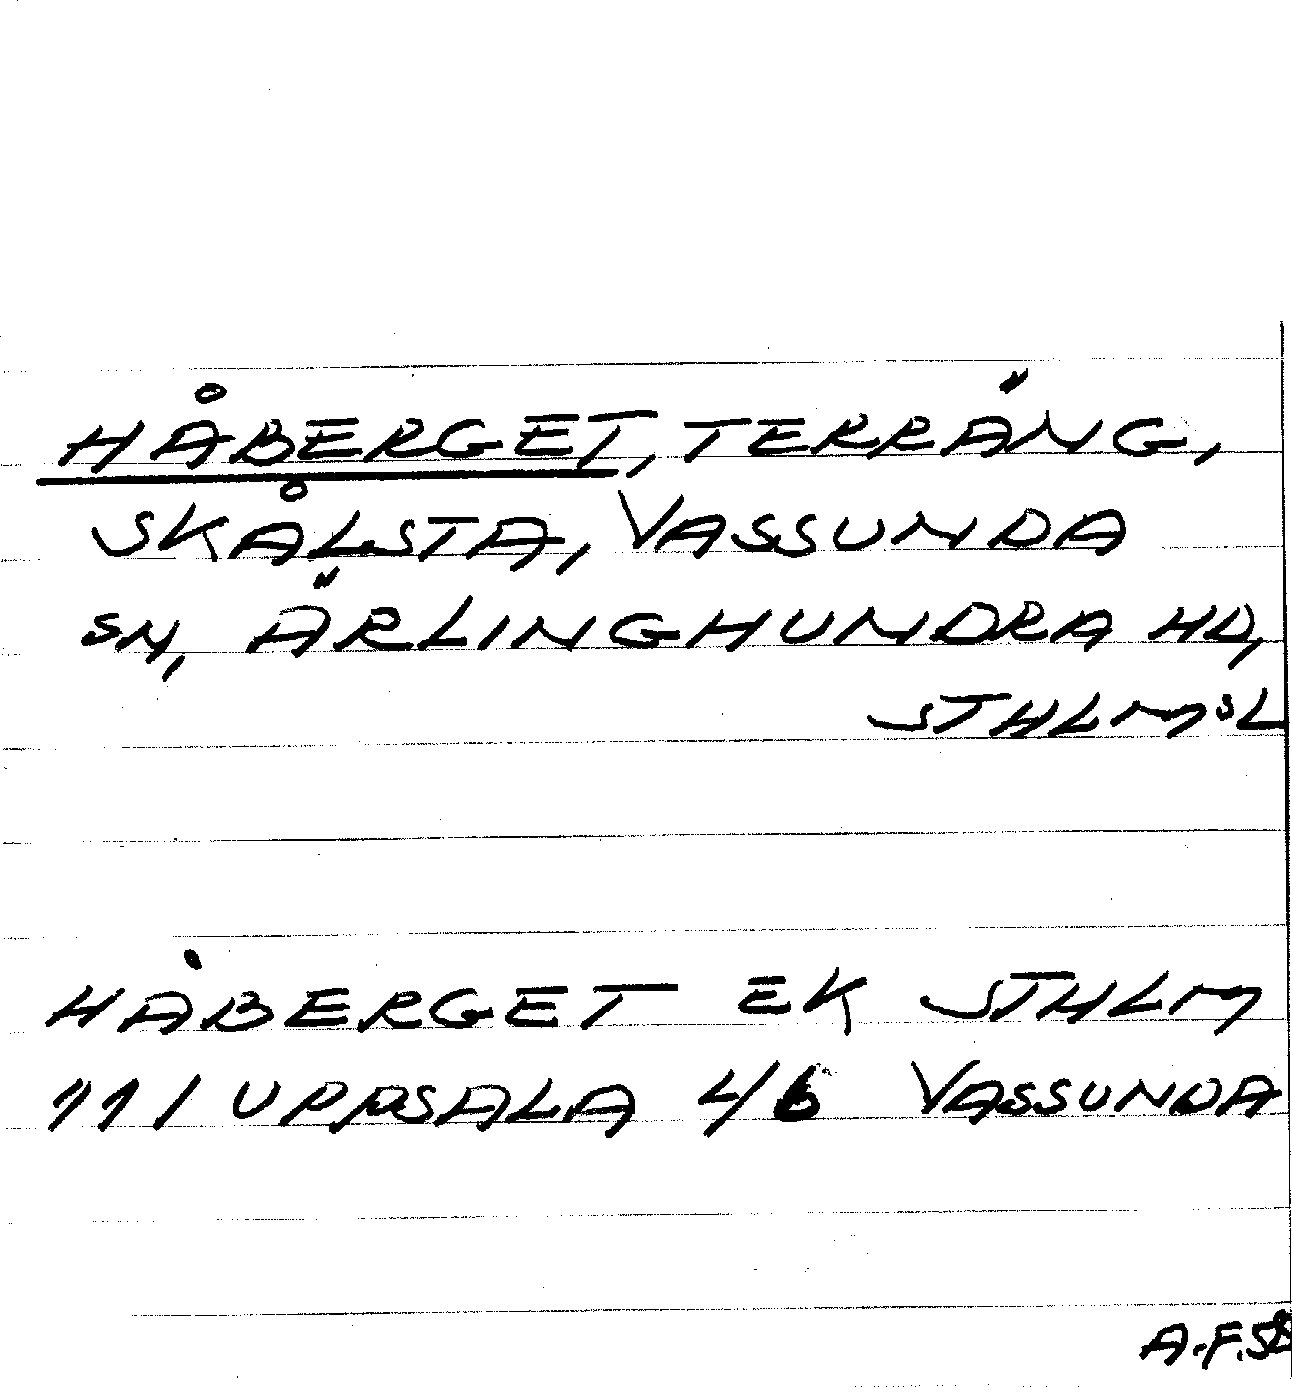 HÅBERGET, TERRÄNG,
SKÅLSTA, VASSUNDA
SN, ÄRLINGHUNDRA HD,
STHLMSL
HÅBERGET EK STHLM
111 UPPSALA 4/6 VASSUNDA